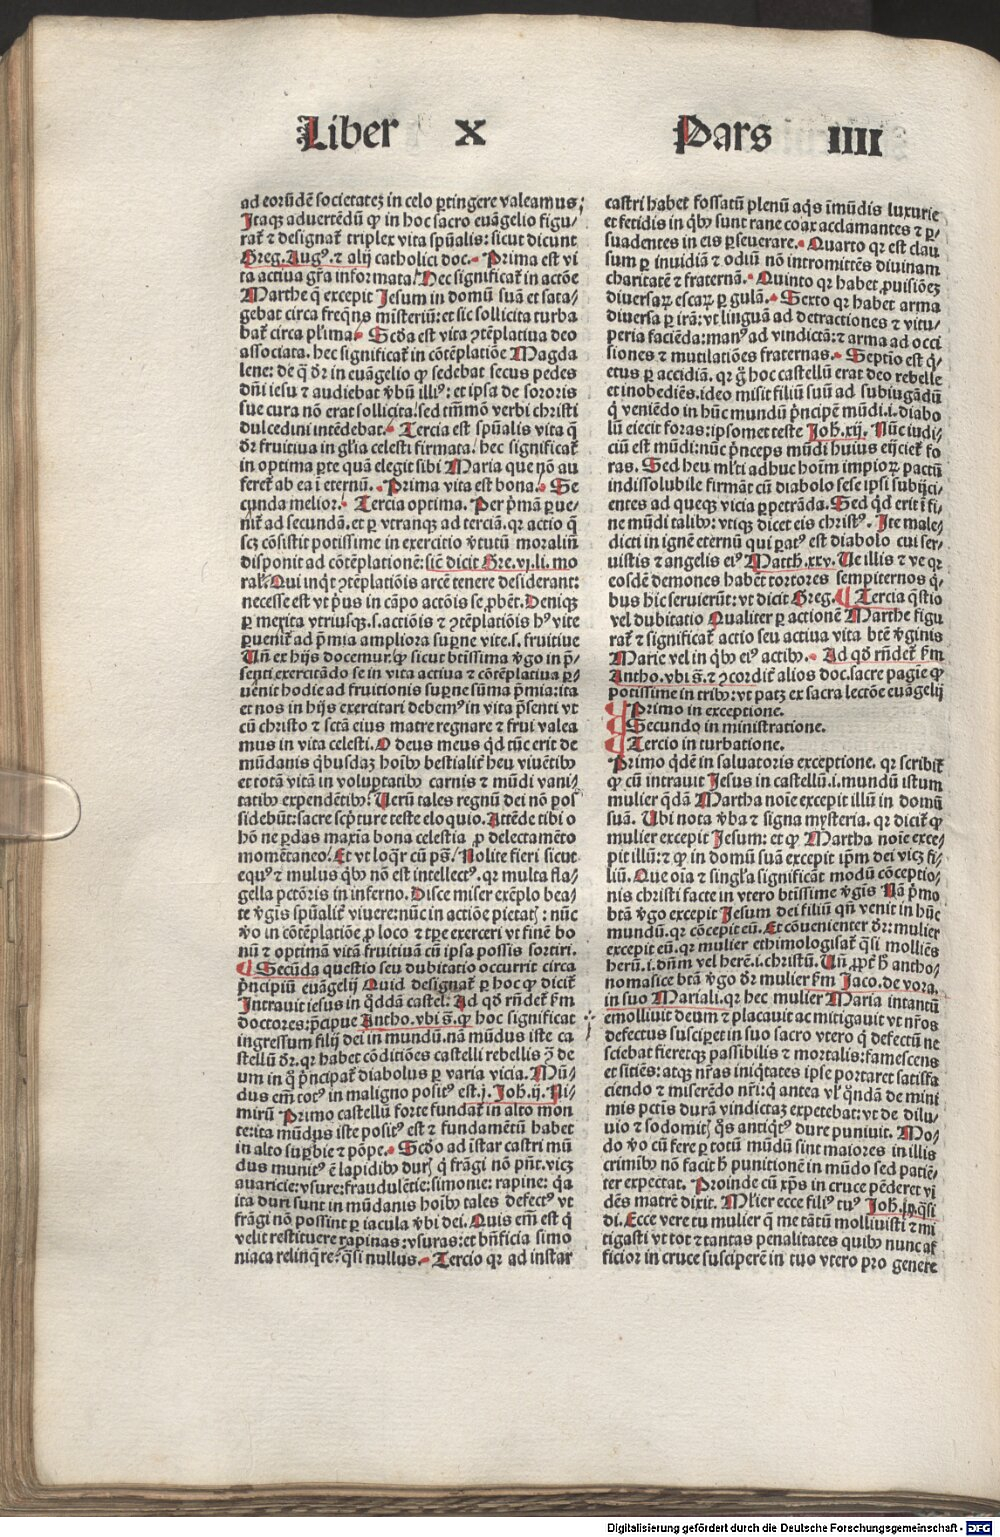 Liber X
Pars IIII
ad eorūdē societatez in celo ꝑtingere valeamus.
Itaqꝫ aduertēdū ꝙ in hoc sacro euāgelio figu/
rat̄ ⁊ designat̄ triplex vita spūalis: sicut dicunt
Greg. Augꝰ. ⁊ alij catholici doc. Prima est vi
ta actiua gr̄a informata. Hec significat̄ in actōe
Marthe q̄ excepit Jesum in domū suā et sata/
gebat circa freq̄ns misteriū: et sic sollicita turba
bat̄ circa pl'ima. Scd̄a est vita ↄtēplatiua deo
associata. hec significat̄ in cōtēplatiōe Magda
lene: de q̄ dr̄ in euāgelio ꝙ sedebat secus pedes
dn̄i iesu ⁊ audiebat v̄bū illiꝰ: et ipsa de sororis
sue cura nō erat sollicita: sed tm̄mō verbi christi
dulcedini intēdebat. Tercia est spūalis vita q̄
dr̄ fruitiua in gl'ia celesti firmata. hec significat̄
in optima ꝑte quā elegit sibi Maria que nō au
feret̄ ab ea ī eternū. Prima vita est bona. Se
cunda melior. Tercia optima. Per p̄mā ꝑue/
nit̄ ad secundā. et ꝑ vtranqꝫ ad terciā. qꝛ actio q̄
scꝫ cōsistit potissime in exercitio v̄tutū moraliū
disponit ad cōtēplationē: sic̄ dicit Gre. vj. li. mo
ral'. Qui inqt ↄtēplatiōis arcē tenere desiderant:
necesse est vt pͥus in cāpo actōis se ꝓbēt. Deniqꝫ
ꝑ merita vtriusqꝫ. s. actiōis ⁊ ↄtēplatiōis hꝰ vite
ꝑuenit̄ ad p̄mia ampliora suꝑne vite. s. fruitiue
Un̄ ex hijs docemur. ꝙ sicut btīssima v̄go in p̄/
senti exercitādo se in vita actiua ⁊ cōtēplatiua ꝑ/
uenit hodie ad fruitionis suꝑne sūma p̄mia: ita
et nos in hijs exercitari debemꝰ in vita p̄senti vt
cū christo ⁊ sctā eius matre regnare ⁊ frui valea
mus in vita celesti. O deus meus qd tūc erit de
mūdanis qͥbusdaꝫ hoīb bestialit̄ heu viuētib
et totā vitā in voluptatib carnis ⁊ mūdi vani/
tatib expendētib? Uerū tales regnū dei nō pos
sidebūt: sacre scp̄ture teste eloquio. Attēde tibi o
hō ne ꝑdas maxīa bona celestia ꝓ delectamēto
momētaneo. Et vt loqr̄ cū ps̄. Nolite fieri sicut
equꝰ ⁊ mulus qͥb nō est intellectꝰ. qꝛ multa fla/
gella pctōris in inferno. Disce miser exēplo bea/
te v̄gis spūalit̄ viuere: nūc in actiōe pietatꝭ: nūc
v̄o in cōtēplatiōe ꝓ loco ⁊ tꝑe exerceri vt finē bo
nū ⁊ optimā vitā fruitiuā cū ipsa possis sortiri.
¶ Secūda questio seu dubitatio occurrit circa
pͥncipiū euāgelij Quid designat̄ ꝑ hoc ꝙ dicit̄
Intrauit iesus in qͦddā castel. Ad qd rn̄det̄ ẜm
doctores: p̄cipue Antho. vbi s̄. ꝙ hoc significat
ingressum filij dei in mundū. nā mūdus iste ca
stellū dr̄. qꝛ habet cōditiōes castelli rebellis ↄ̄ de
um in q̄ pͥncipat̄ diabolus ꝑ varia vicia. Mū/
dus em̄ totꝰ in maligno positꝰ est. j. Joh. ij. Ni/
mirū Primo castellū forte fundat̄ in alto mon
te: ita mūdus iste positꝰ est ⁊ fundamētū habet
in alto suꝑbie ⁊ pōpe. Scdō ad īstar castri mū
dus munitꝰ ē lapidib durꝭ q̄ frāgi nō pn̄t. vicꝫ
auaricie: vsure: fraudulētie: simonie: rapine: qꝛ
ita duri sunt in mūdanis hoīb tales defectꝰ vt
frāgi nō possint ꝑ iacula v̄bi dei. Quis em̄ est q̄
velit restituere rapinas: vsuras: et bn̄ficia simo
niaca relinqre? qsi nullus. Tercio qꝛ ad instar
castri habet fossatū plenū aqs īmūdis luxurie
et fetidis in qͥb sunt rane coax acclamantes ⁊ ꝑ/
suadentes in eis ꝑseuerare. Quarto qꝛ est clau
sum ꝑ inuidiā ⁊ odiū nō intromittēs diuinam
charitatē ⁊ fraternā. Quinto qꝛ habet ꝓuisiōeꝫ
diuersaꝝ escaꝝ ꝑ gulā. Sexto qꝛ habet arma
diuersa ꝑ irā: vt linguā ad detractiones ⁊ vitu/
peria faciēda: manꝰ ad vindictā: ⁊ arma ad occi
siones ⁊ mutilatiōes fraternas. Septīo est q̄/
etus ꝑ accidiā. qꝛ g̊ hoc castellū erat deo rebelle
et inobediēs. ideo misit filiū suū ad subiugādū
q̄ veniēdo in hūc mundū pͥncipē mūdi. i. diabo
lū eiecit foras: ipsomet teste Joh. xij. Nūc iudi/
ciū est mūdi: nūc pͥnceps mūdi huius eijciet̄ fo
ras. Sed heu ml'ti adhuc hoīm impioꝝ pactū
indissolubile firmāt cū diabolo sese ipsi subijci/
entes ad queqꝫ vicia ꝑpetrāda. Sed qd erit ī fi/
ne mūdi talib: vtiqꝫ dicet eis christꝰ. Ite male/
dicti in ignē eternū qui ꝑatꝰ est diabolo cui ser/
uistis ⁊ angelis eiꝰ Matth. xxv. Ue illis ⁊ ve qꝛ
eosdē demones habēt tortores sempiternos q̄/
bus hic seruierūt: vt dicit Greg. ¶ Tercia qstio
vel dubitatio Qualiter ꝑ actionē Marthe figu
rat̄ ⁊ significat̄ actio seu actiua vita btē v̄ginis
Marie vel in qͥb eiꝰ actib. Ad qd rn̄det̄ ẜm
Antho. vbi s̄. ⁊ ↄcordit̄ alios doc. sacre pagīe ꝙ
potissime in trib: vt patꝫ ex sacra lectōe euāgelij
¶ Primo in exceptione.
¶ Secundo in ministratione.
¶ Tercio in turbatione.
Primo qdē in saluatoris exceptione. qꝛ scribit̄
ꝙ cū intrauit Jesus in castellū. i. mundū istum
mulier qdā Martha noīe excepit illū in domū
suā. Ubi nota v̄ba ⁊ signa mysteria. qꝛ dicit̄ ꝙ
mulier excepit Jesum: et ꝙ Martha noīe exce/
pit illū: ⁊ ꝙ in domū suā excepit ip̄m dei vicꝫ fi/
liū. Que oīa ⁊ singl'a significāt modū cōceptio/
nis christi facte in vtero btīssime v̄gīs Nā pͥmo
btā v̄go excepit Jesum dei filiū qn̄ venit in hūc
mundū. qꝛ cōcepit eū. Et cōuenienter dr̄: mulier
excepit eū. qꝛ mulier ethimologisat̄ qsi molliēs
herū. i. dn̄m vel herē. i. christū. Un̄ ꝓpt̄ h̄ antho/
nomasice btā v̄go dr̄ mulier ẜm Jaco. de vora.
in suo Mariali. qꝛ hec mulier Maria intantū
emolliuit deum ⁊ placauit ac mitigauit vt nr̄os
defectus susciꝑet in suo sacro vtero q̄ defectū ne
sciebat fieretqꝫ passibilis ⁊ mortalis: famescens
et sitiēs: atqꝫ nr̄as iniqͥtates ipse portaret satisfa
ciendo ⁊ miserēdo nr̄i: q̄ antea vl' qͦndā de mini
mis pctīs durā vindictaꝫ expetebat: vt de dilu/
uio ⁊ sodomitꝭ qͦs antiqͥtꝰ dure puniuit. Mo/
do v̄o cū fere ꝑ totū mūdū sint maiores in illis
crimīb nō facit h̄ punitionē in mūdo sed patiē/
ter expectat. Proinde cū xp̄s in cruce pēderet vi
dēs matrē dixit. Ml'ier ecce filiꝰ tuꝰ Joh. xix. qsi
di. Ecce vere tu mulier q̄ me tātū molliuisti ⁊ mi
tigasti vt tot ⁊ tantas penalitates quib nunc af
ficior in cruce susciperē in tuo vtero pro genere
Digitalisierung gefördert durch die Deutsche Forschungsgemeinschaft - DFG